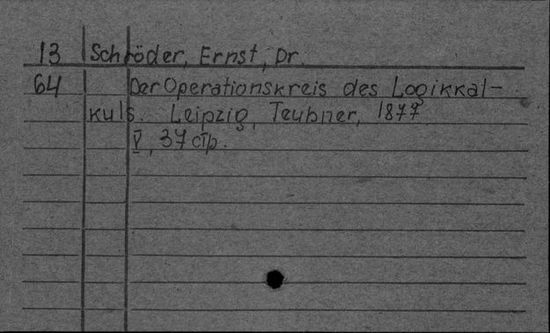 13 Schröder, Ernst, Dr.
64 Der Operationskreis des Logikkal-
kuls. Leipzig, Teubner, 1877
V, 37 стр.